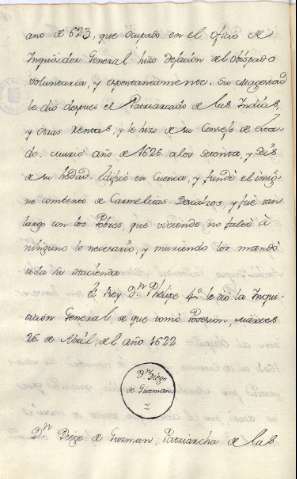 año de 623, que ocupado en el oficio de
Inquisidor General hizo dejacion del Obispado
voluntaria, y espontaneamente. Su Magestad
le dió despues el Patriarcado de las Indias,
y otras Rentas, y le hizo de su Consejo de Esta-
do, murió año de 1626 a los setenta, y seis
de su hedad, Edificó en Cuenca, y fundó el insig-
ne combento de Carmelitas Descalzos, y fue tan
largo con los Pobres que viviendo no faltó á
ninguno lo necesario, y muriendo les mandó
toda su hacienda.
El Rey Dn Phelipe 4º le dio la Inqui-
sicion General de que tomó Posesion, Martes
26 de Abril, de el año 1622
Dn Diego
de Guzman
Dn Diego de Guzman, Patriarcha de las